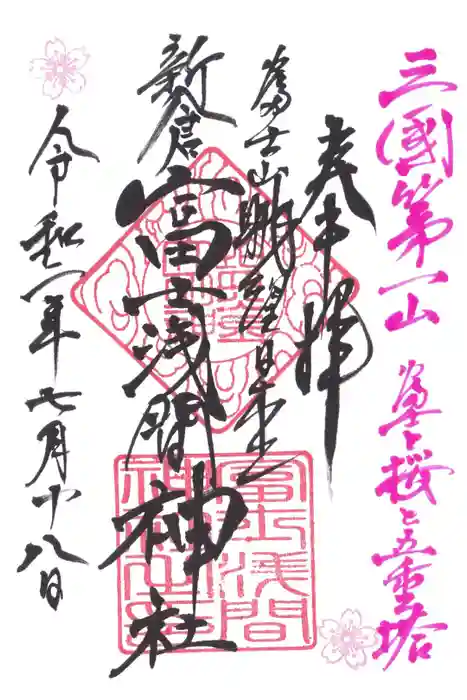 三國第一山
富士と桜と五重塔
奉拝
富士山
新倉
富士浅間神社
令和一年七月十八日
冨士浅間